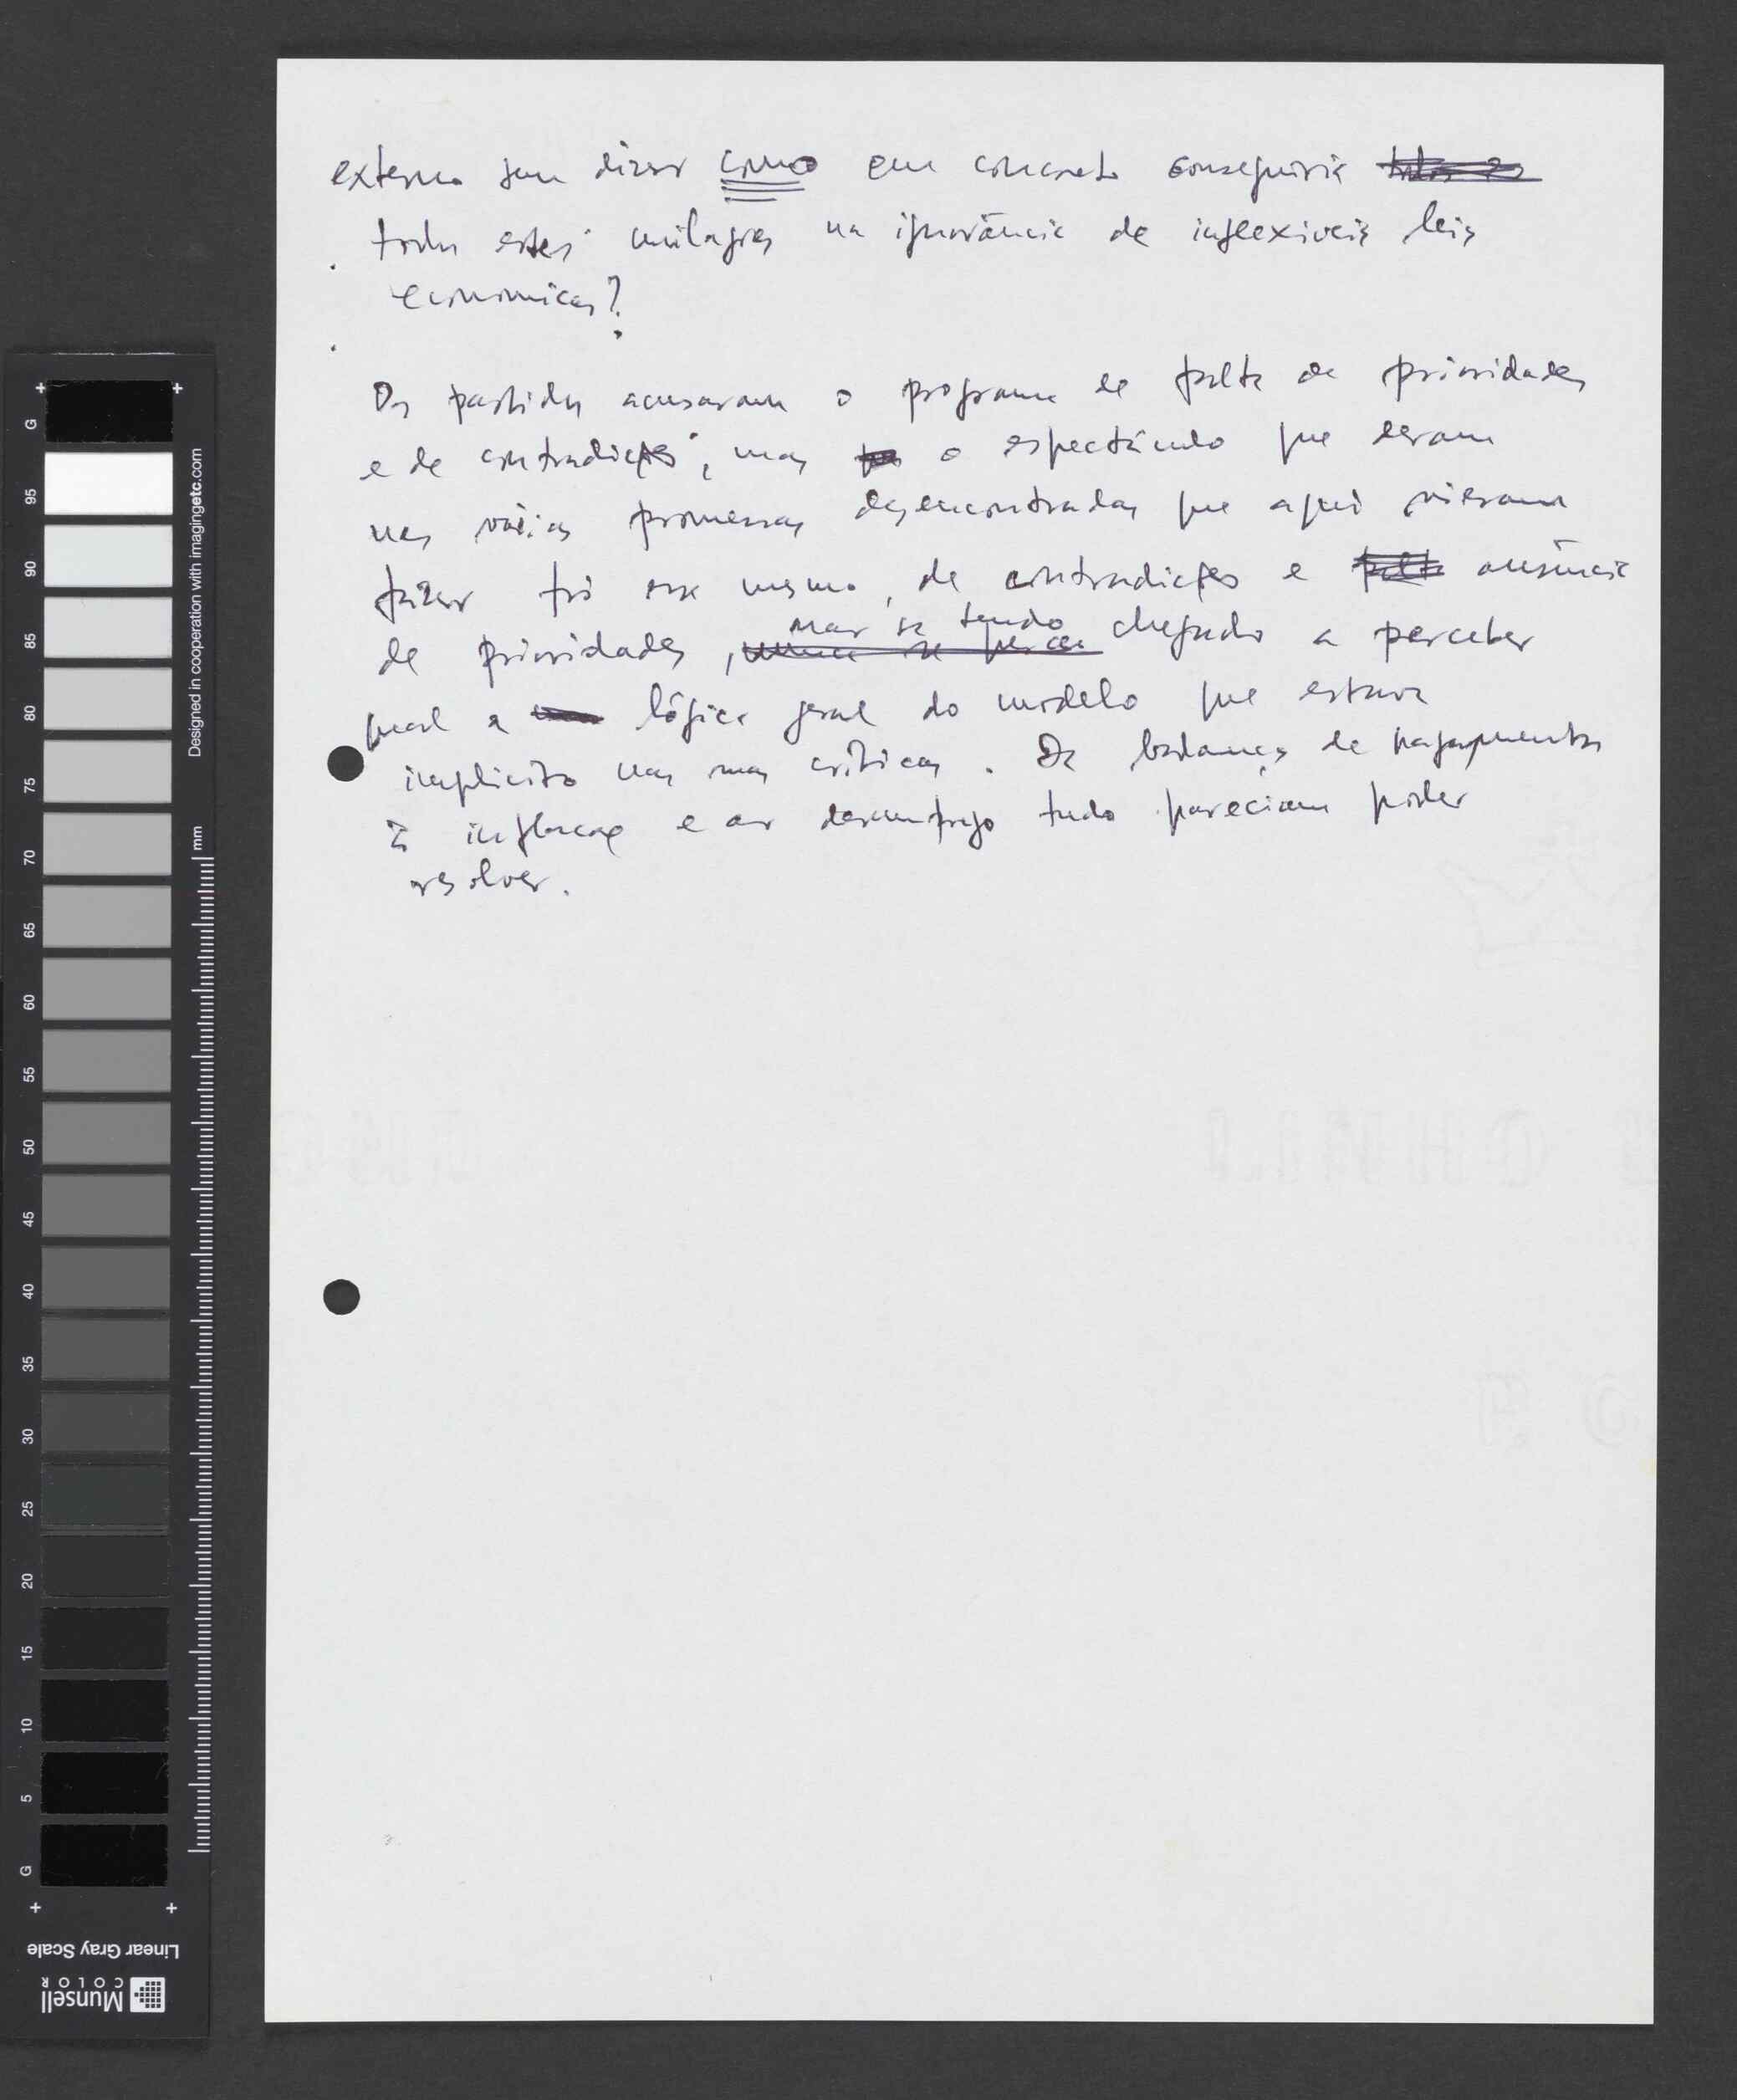 externo sem dizer como em concreto conseguiria
todos estes milagres na ignorância de inflexiveis leis
economicas?
Os partidos acusaram o programa de falta de prioridades
e de contradições, mas o espectáculo que deram
nas várias promessas desencontradas que aqui vieram
fazer foi esse mesmo, de contradições e ausência
de prioridades, não se tendo chegado a perceber
qual a lógica geral do modelo que estava
implicito nas suas críticas. Da balança de pagamentos
à inflação e ao desemprego tudo pareciam poder
resolver.
G 95 90 85 80 75 70 65 60 55 50 45 40 35 30 25 20 15 10 5 G
Designed in cooperation with imagingetc.com
mm
Linear Gray Scale
Munsell
COLOR